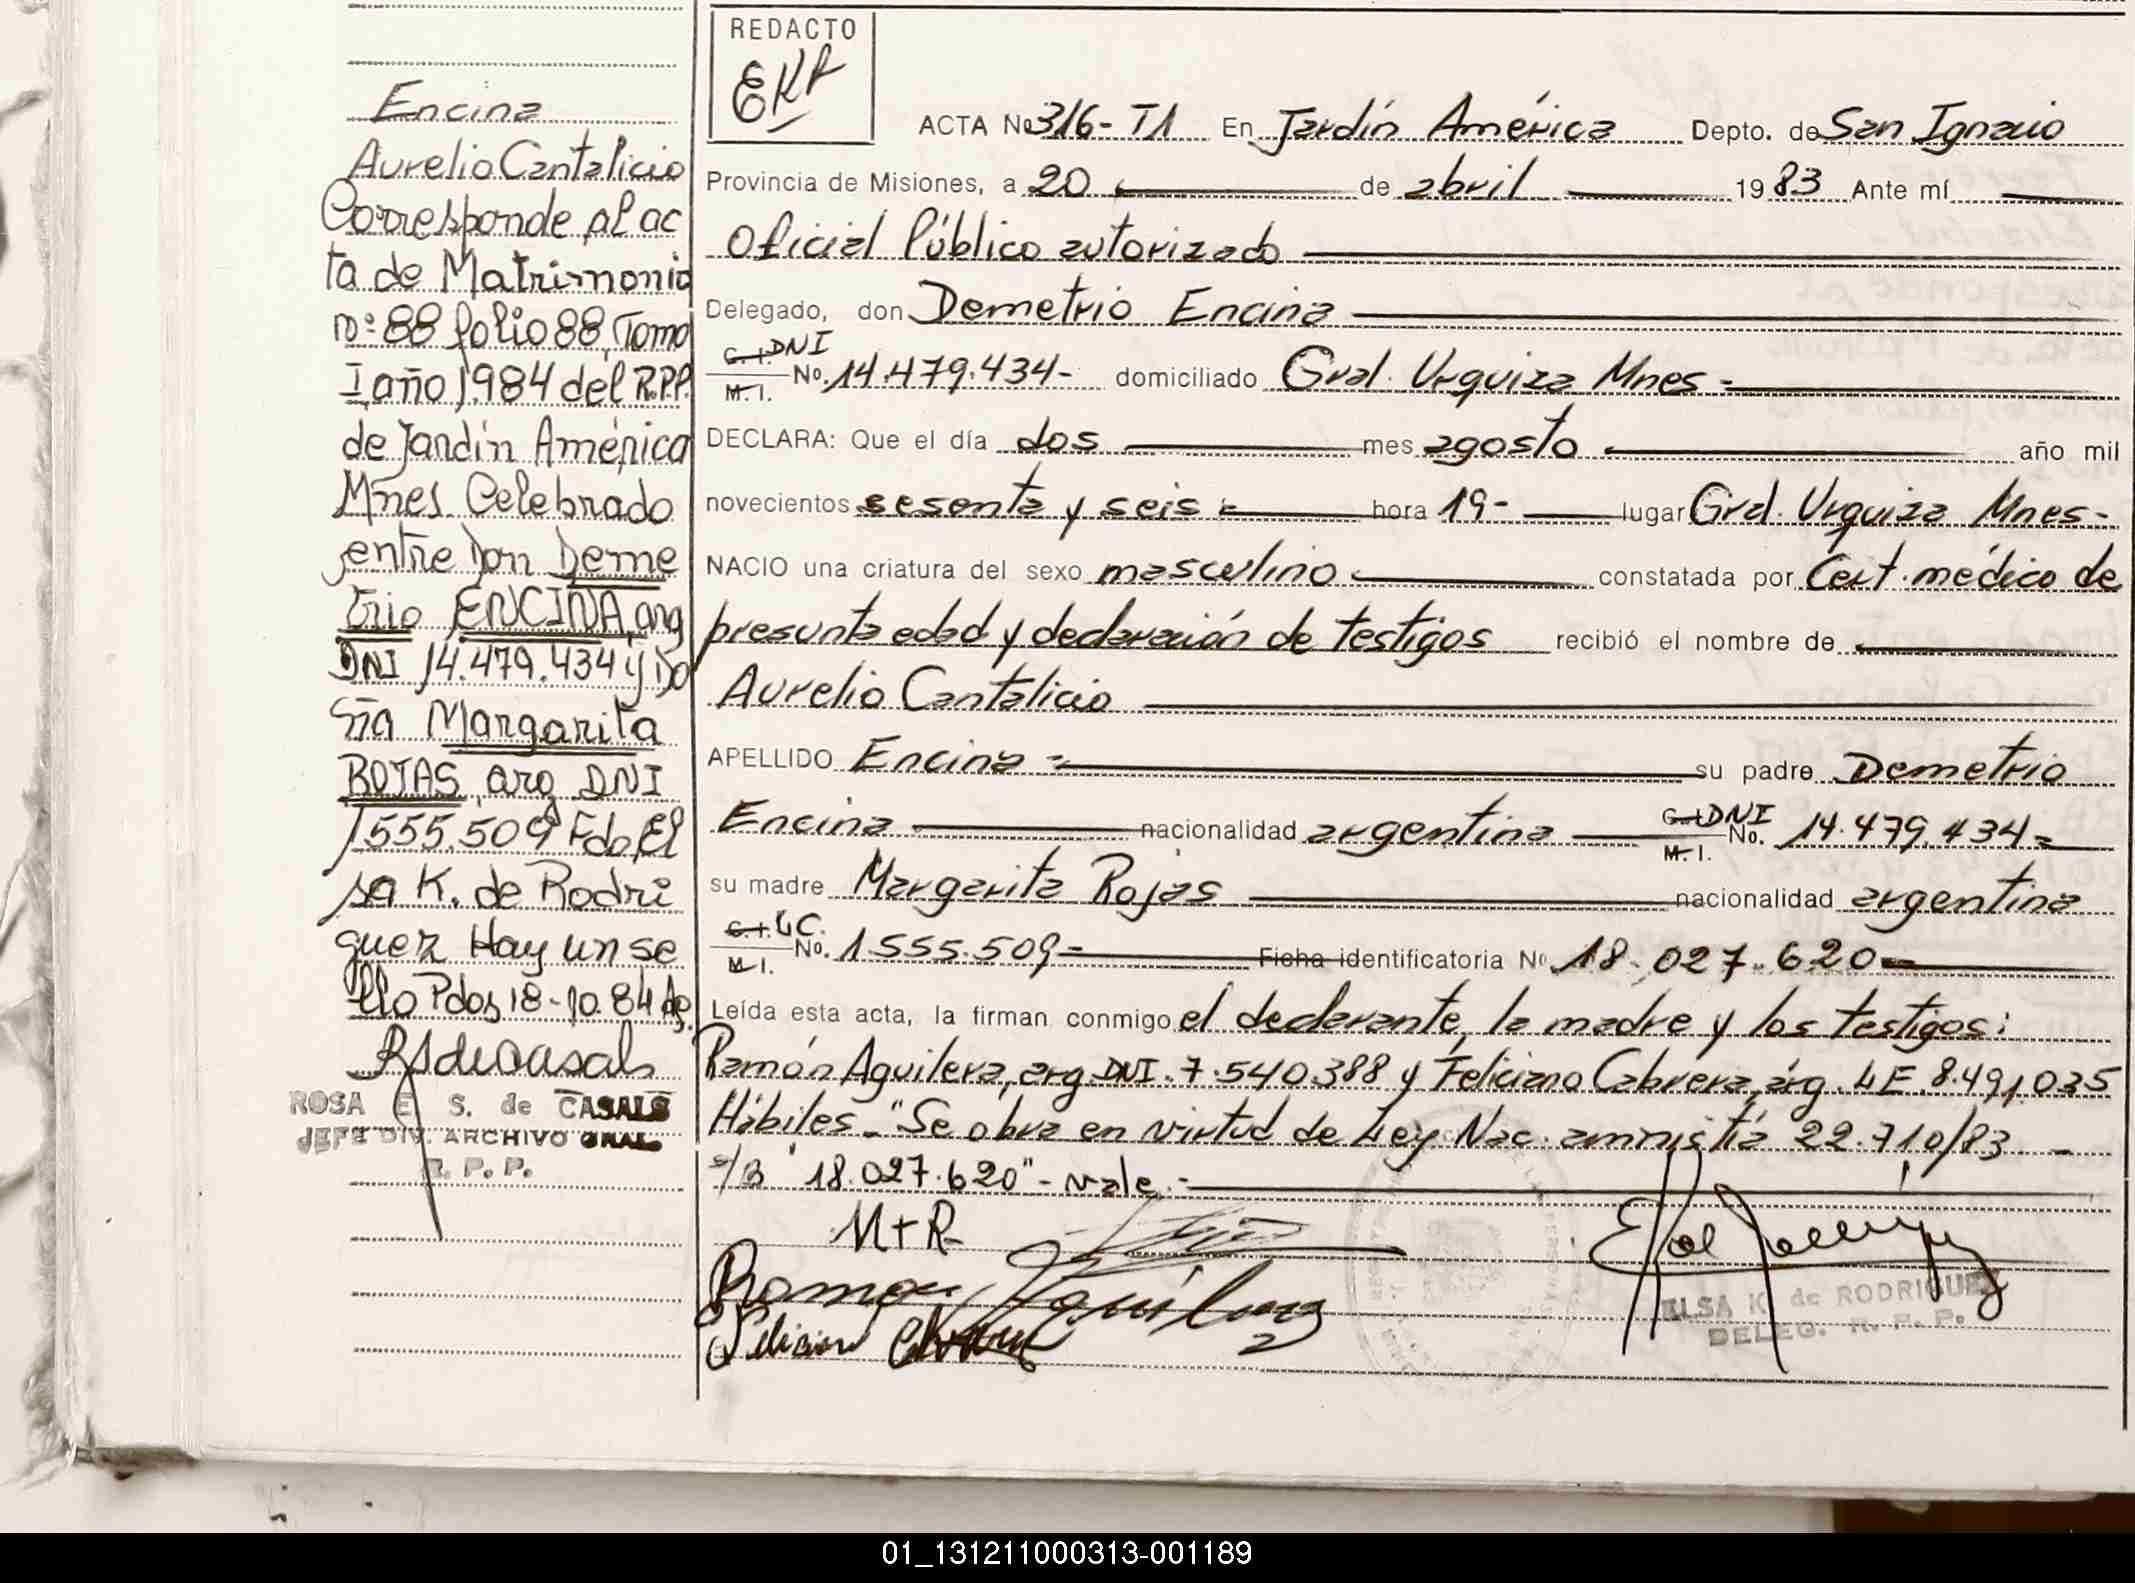 Encina
Aurelio Cantalicio
Corresponde al ac
ta de Matrimonio
nº 88 folio 88, Tomo
I año 1984 del R.P.P.
de Jardín América
Mnes. Celebrado
entre Don Deme
trio ENCINA, arg
DNI 14.479.434 y Do
ña Margarita
ROJAS, arg DNI
1555.509 Fdo. El
sa K. de Rodri
guez Hay un se
llo Pdos 18-10.84
ROSA E S. de CASALS
JEFE DIV. ARCHIVO GRAL.
R. P. P.
REDACTO
EKR
ACTA No 316- T1 En Jardín América Depto. de San Ignacio
Provincia de Misiones, a 20 de abril 1983 Ante mí
Oficial Público autorizado
Delegado, don Demetrio Encina
C. I. DNI
M. I. No. 14.479.434- domiciliado Gral. Urquiza Mnes -
DECLARA: Que el día dos mes agosto año mil
novecientos sesenta y seis hora 19- lugar Gral. Urquiza Mnes-
NACIO una criatura del sexo masculino constatada por Cert. médico de
presunta edad y declaración de testigos recibió el nombre de
Aurelio Cantalicio
APELLIDO Encina su padre Demetrio
Encina nacionalidad argentina C. I. DNI M. I. No. 14.479.434=
su madre Margarita Rojas nacionalidad argentina
C. I. LC. M. I. No. 1.555.509= Ficha identificatoria Nº 18.027.620=
Leída esta acta, la firman conmigo el declarante, la madre y los testigos:
Ramón Aguilera, arg. DNI. 7.540.388 y Feliciano Cabrera, arg. LE. 8.491.035
Hábiles.- "Se obra en virtud de Ley Nac. amnistía 22.710/83 -
s/B "18.027.620"- vale.-
M+R
Ramon Aguilera
ELSA K. de RODRIGUEZ
DELEG. R. P. P.
01_131211000313-001189